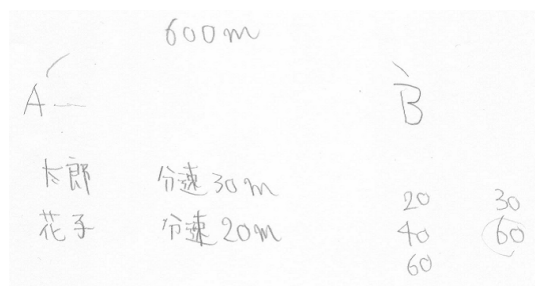 600m
A B
太郎 分速30m
花子 分速20m
20 30
40 60
60